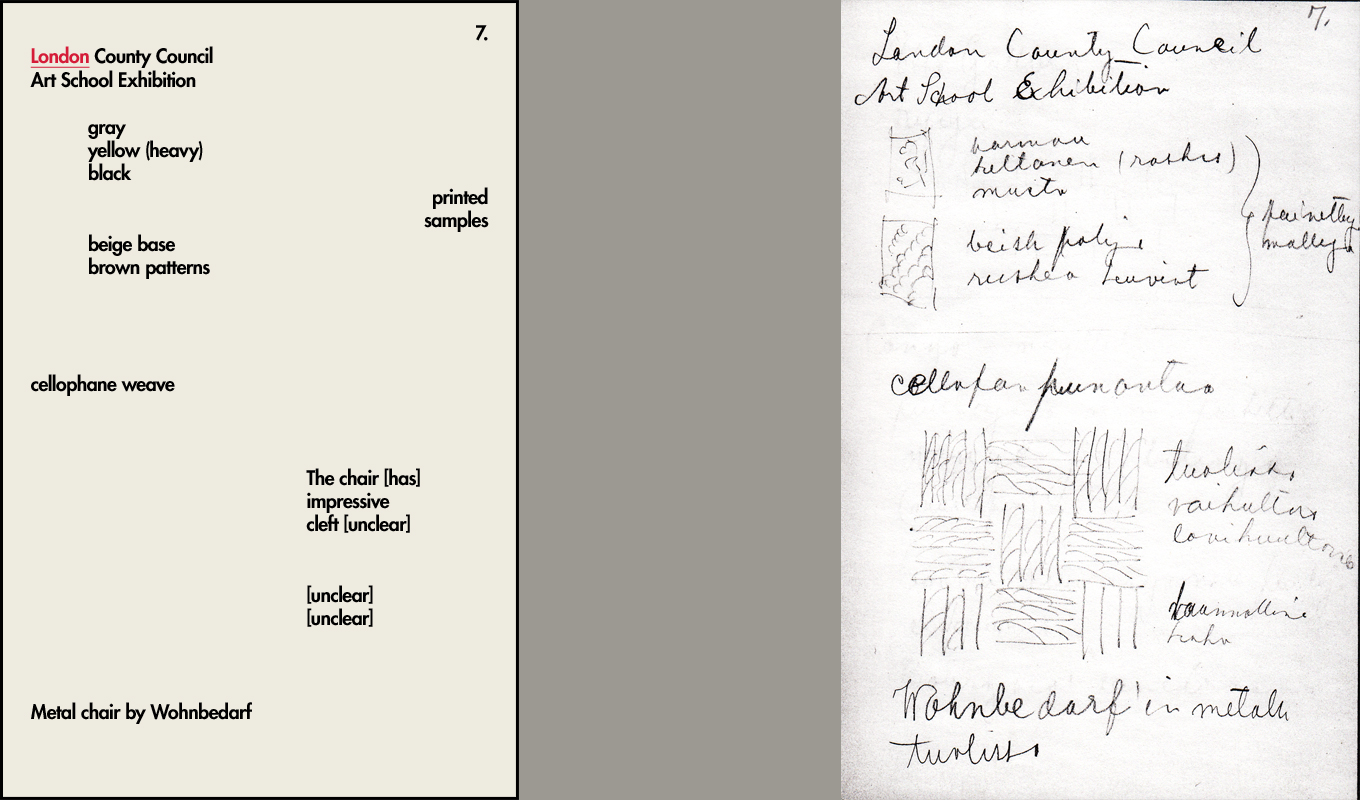 7.
London County Council
Art School Exhibition
gray
yellow (heavy)
black
printed
samples
beige base
brown patterns
cellophane weave
The chair [has]
impressive
cleft [unclear]
[unclear]
[unclear]
Metal chair by Wohnbedarf
7.
London County Council
Art School Exhibition
harmaa
keltanen (raskas)
musta
painettuja
malleja
beish pohja
ruskea kuviot
cellofan punontaa
tuolissa
Wohnbedarf'in metalli
tuolissa